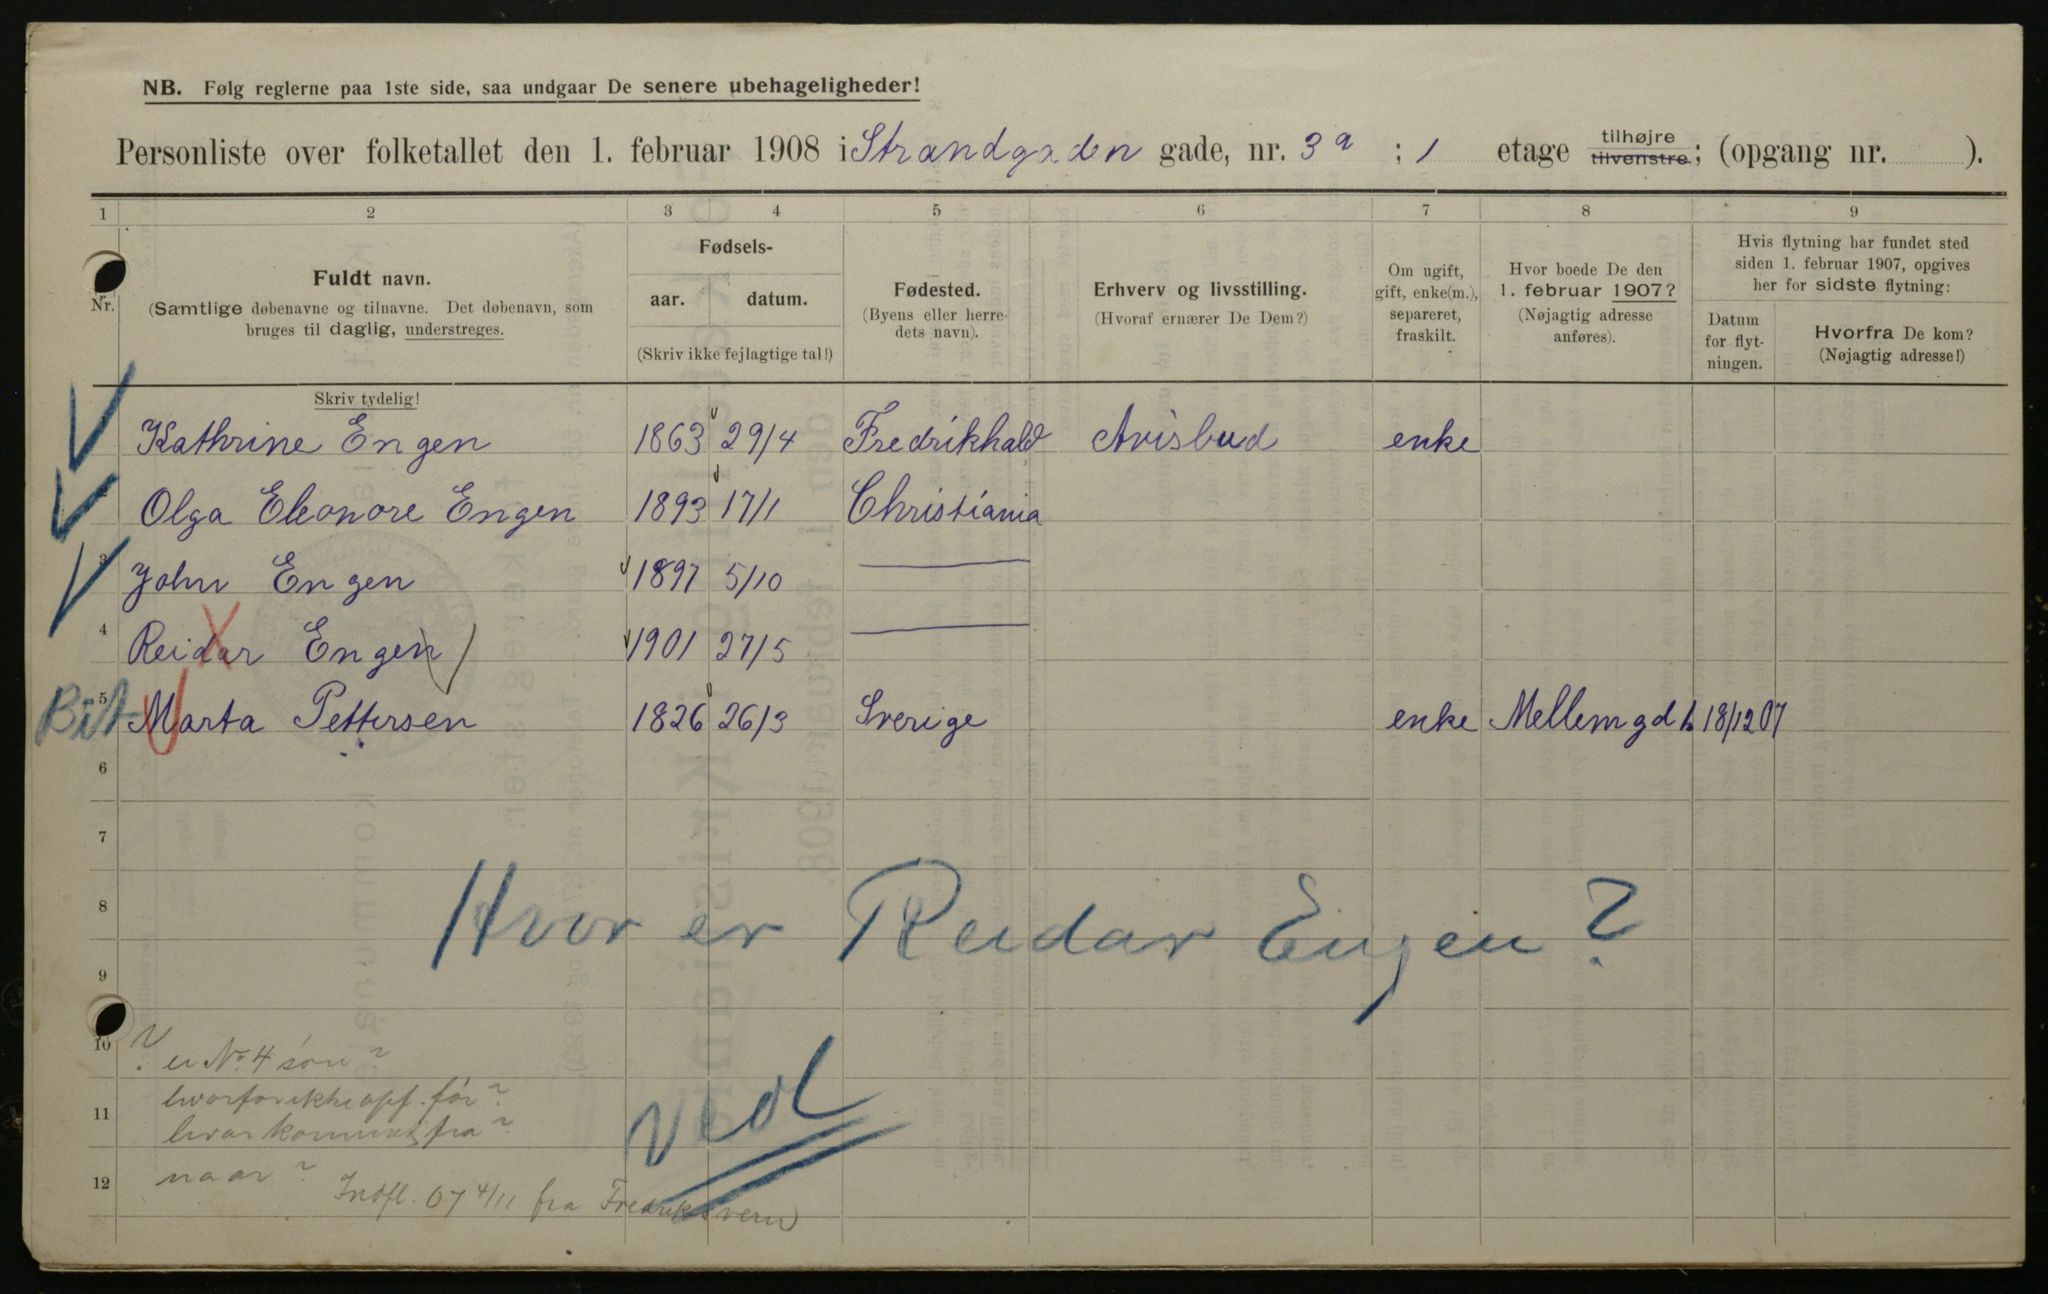 NB. Følg reglerne paa 1ste side, saa undgaar De senere ubehageligheder!
Personliste over folketallet den 1. februar 1908 i Strandgaden gade, nr. 3a ; 1 etage tilhøjre tilvenstre; (opgang nr. ).
1 2 3 4 5 6 7 8 9
Nr.
Fuldt navn.
(Samtlige døbenavne og tilnavne. Det døbenavn, som
bruges til daglig, understreges.
Skriv tydelig!
Fødsels-
aar. datum.
(Skriv ikke fejlagtige tal!)
Fødested.
(Byens eller herre-
dets navn).
Erhverv og livsstilling.
(Hvoraf ernærer De Dem?)
Om ugift,
gift, enke(m.),
separeret,
fraskilt.
Hvor boede De den
1. februar 1907?
(Nøjagtig adresse
anføres).
Hvis flytning har fundet sted
siden 1. februar 1907, opgives
her for sidste flytning:
Datum
for flyt-
ningen.
Hvorfra De kom?
(Nøjagtig adresse!)
Kathrine Engen 1863 29/4 Fredrikhald Avisbud enke
Olga Eleonore Engen 1893 17/1 Christiania
3 John Engen 1897 5/10 —
4 Reidar Engen 1901 27/5 —
5 Marta Pettersen 1826 26/3 Sverige enke Mellemgd 18/12 07
6
7
8
Hvor er Reidar Engen?
9
10 ? er No 4 søn?
11 hvorfor ikke opf. før?
hvor kommet fra?
ved
12 naar?
Indfl. 07 4/11 fra Fredriksvern